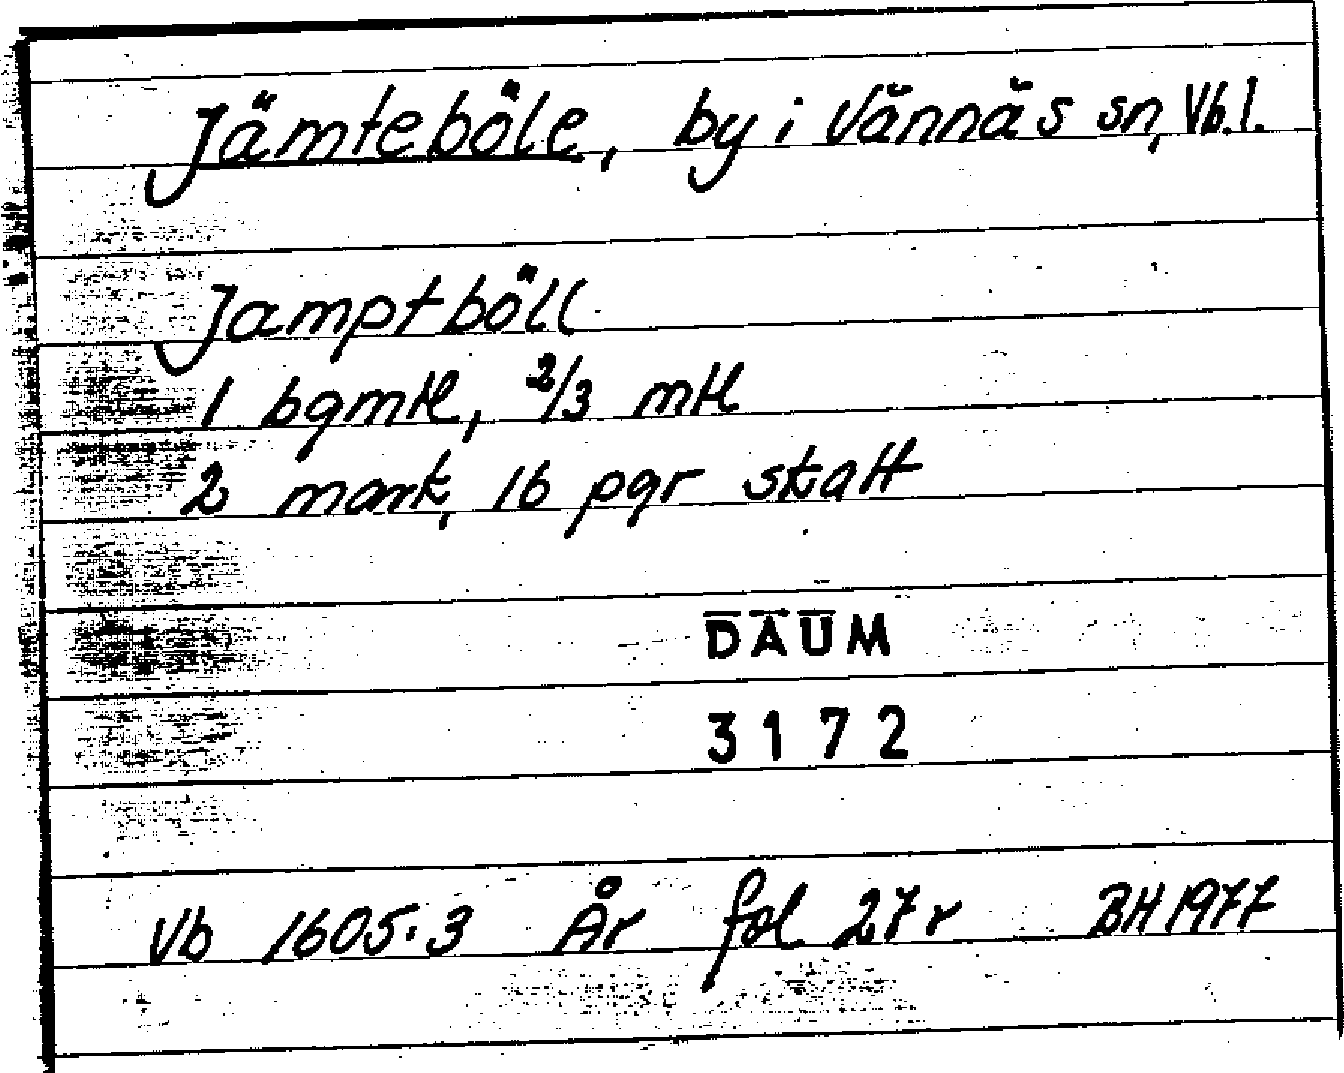 Jämteböle, by i Vännäs sn, Vb.l.
Jamptböll
1 bgmtl, 2/3 mtl
2 mark, 16 pgr skatt
DAUM
3172
Vb 1605:3 År fol 27r BH 1977